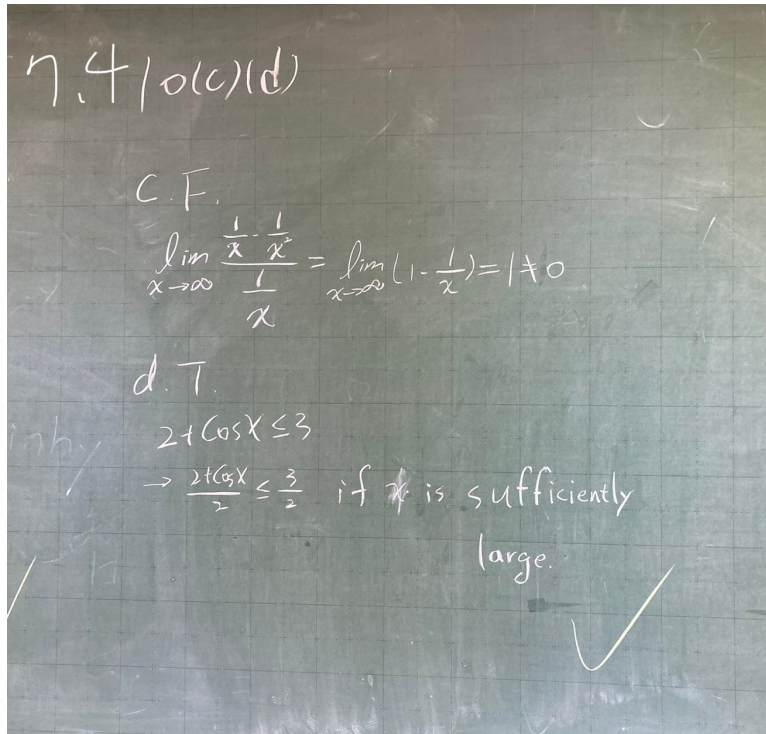 7.4 10(c)(d)
C. F.
lim x→∞ (1/x - 1/x²)/(1/x) = lim x→∞ (1 - 1/x) = 1 ≠ 0
d. T.
2+Cosx ≤ 3
→ (2+Cosx)/2 ≤ 3/2 if x is sufficiently
large.